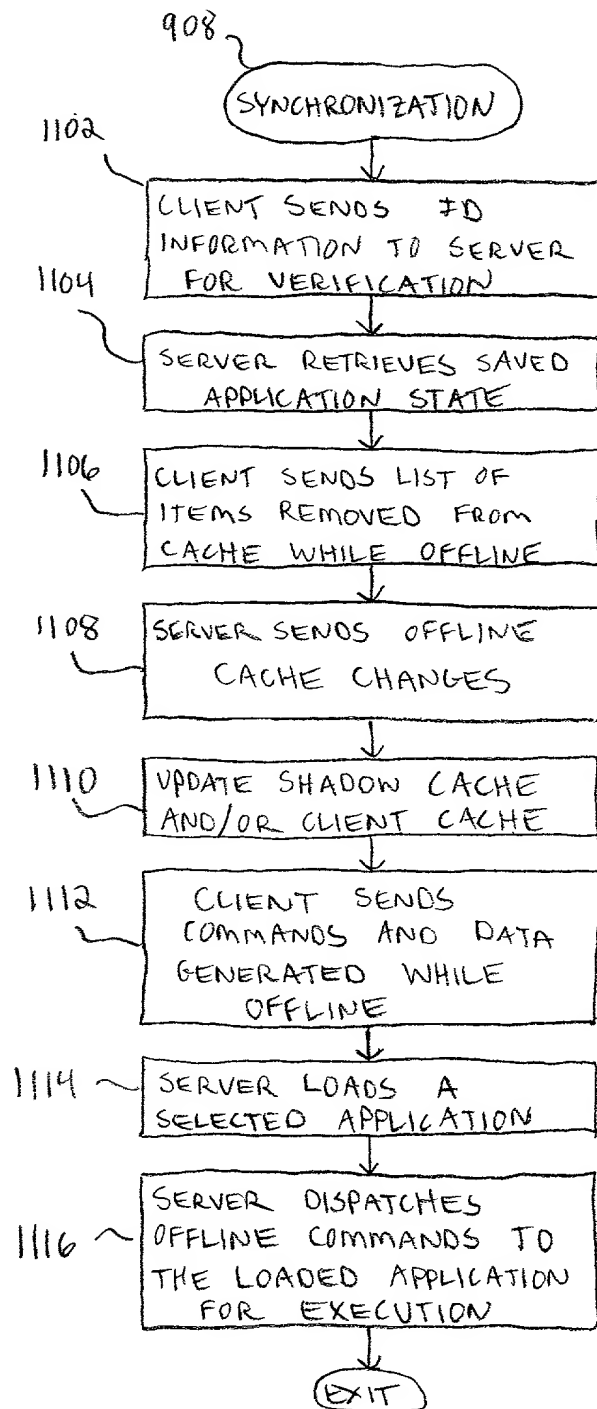 908
SYNCHRONIZATION
1102
CLIENT SENDS ID
INFORMATION TO SERVER
FOR VERIFICATION
1104
SERVER RETRIEVES SAVED
APPLICATION STATE
1106
CLIENT SENDS LIST OF
ITEMS REMOVED FROM
CACHE WHILE OFFLINE
1108
SERVER SENDS OFFLINE
CACHE CHANGES
1110
UPDATE SHADOW CACHE
AND/OR CLIENT CACHE
1112
CLIENT SENDS
COMMANDS AND DATA
GENERATED WHILE
OFFLINE
1114
SERVER LOADS A
SELECTED APPLICATION
1116
SERVER DISPATCHES
OFFLINE COMMANDS TO
THE LOADED APPLICATION
FOR EXECUTION
EXIT